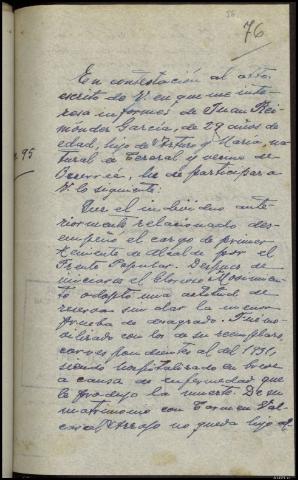 76
95
En contestación al atto.
escrito de V. en que me inte-
resa informes de Juan
Garcia, de 29 años de
edad, hijo de Arturo y Maria, na-
tural de y vecino de
Becerreá, he de participar a
V. lo siguiente:
Que el individuo ante-
riormente relacionado des-
empeñó el cargo de primer
teniente de Alcalde por el
Frente Popular. Despues de
iniciarse el Glorioso Movimien-
to adoptó una actitud de
reserva sin dar la menor
prueba de desagrado. Fué mo-
vilizado con los de su reemplazo,
correspondientes al del 1931,
siendo hospitalizado en breve
a causa de enfermedad que
le produjo la muerte. De su
matrimonio con Carmen Val-
carcel Arrojo no queda hijo al-